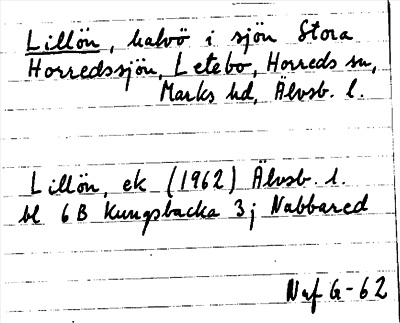 Lillön, halvö i sjön Stora
Horredssjön, Letebo, Horreds sn,
Marks hd, Älvsb. l.
Lillön, ek (1962) Älvsb. l.
bl 6 B Kungsbacka 3 j Nabbared
Naf G-62